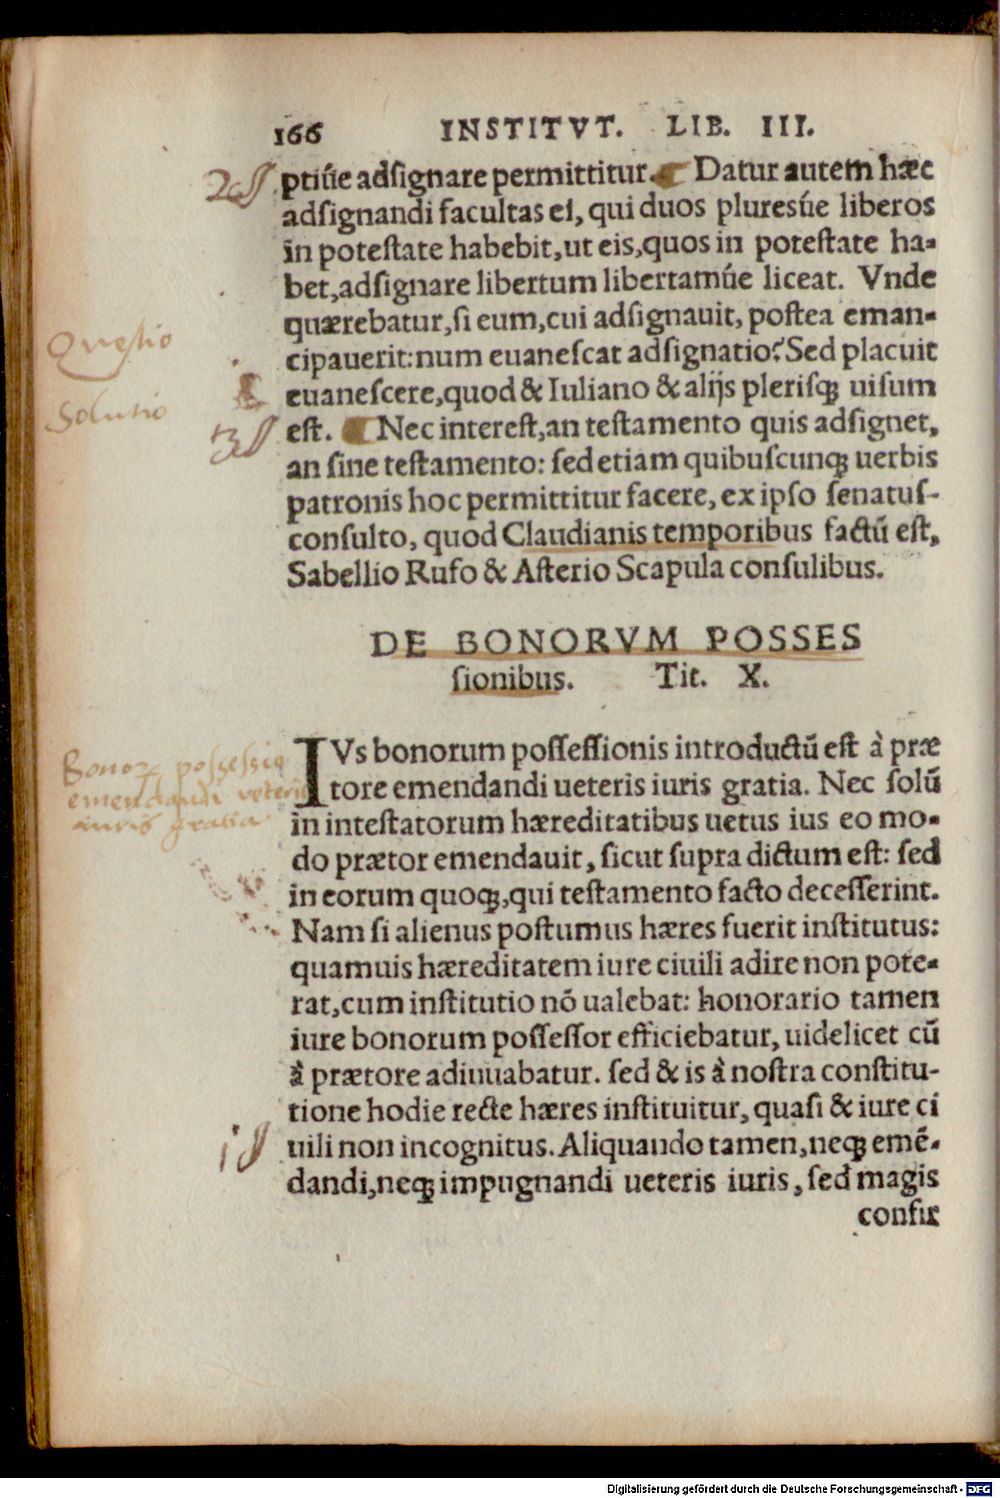 166 INSTITVT. LIB. III.
2§ ptiúe adsignare permittitur. Datur autem hæc
adsignandi facultas ei, qui duos pluresúe liberos
in potestate habebit, ut eis, quos in potestate ha-
bet, adsignare libertum libertamúe liceat. Vnde
quærebatur, si eum, cui adsignauit, postea eman-
Questio
cipauerit: num euanescat adsignatio? Sed placuit
euanescere, quod & Iuliano & alijs plerisq; uisum
Solutio
3§ est. Nec interest, an testamento quis adsignet,
an sine testamento: sed etiam quibuscunq; uerbis
patronis hoc permittitur facere, ex ipso senatus-
consulto, quod Claudianis temporibus factū est,
Sabellio Rufo & Asterio Scapula consulibus.
DE BONORVM POSSES
sionibus. Tit. X.
IVs bonorum possessionis introductū est à præ
Bonoꝝ possessio
tore emendandi ueteris iuris gratia. Nec solū
emendandi veteris
in intestatorum hæreditatibus uetus ius eo mo-
iuris gratia
do prætor emendauit, sicut supra dictum est: sed
in eorum quoq;, qui testamento facto decesserint.
Nam si alienus postumus hæres fuerit institutus:
quamuis hæreditatem iure ciuili adire non pote-
rat, cum institutio nō ualebat: honorario tamen
iure bonorum possessor efficiebatur, uidelicet cū
à prætore adiuuabatur. sed & is à nostra constitu-
tione hodie recte hæres instituitur, quasi & iure ci
1§ uili non incognitus. Aliquando tamen, neq; emē-
dandi, neq; impugnandi ueteris iuris, sed magis
confir
Digitalisierung gefördert durch die Deutsche Forschungsgemeinschaft - DFG